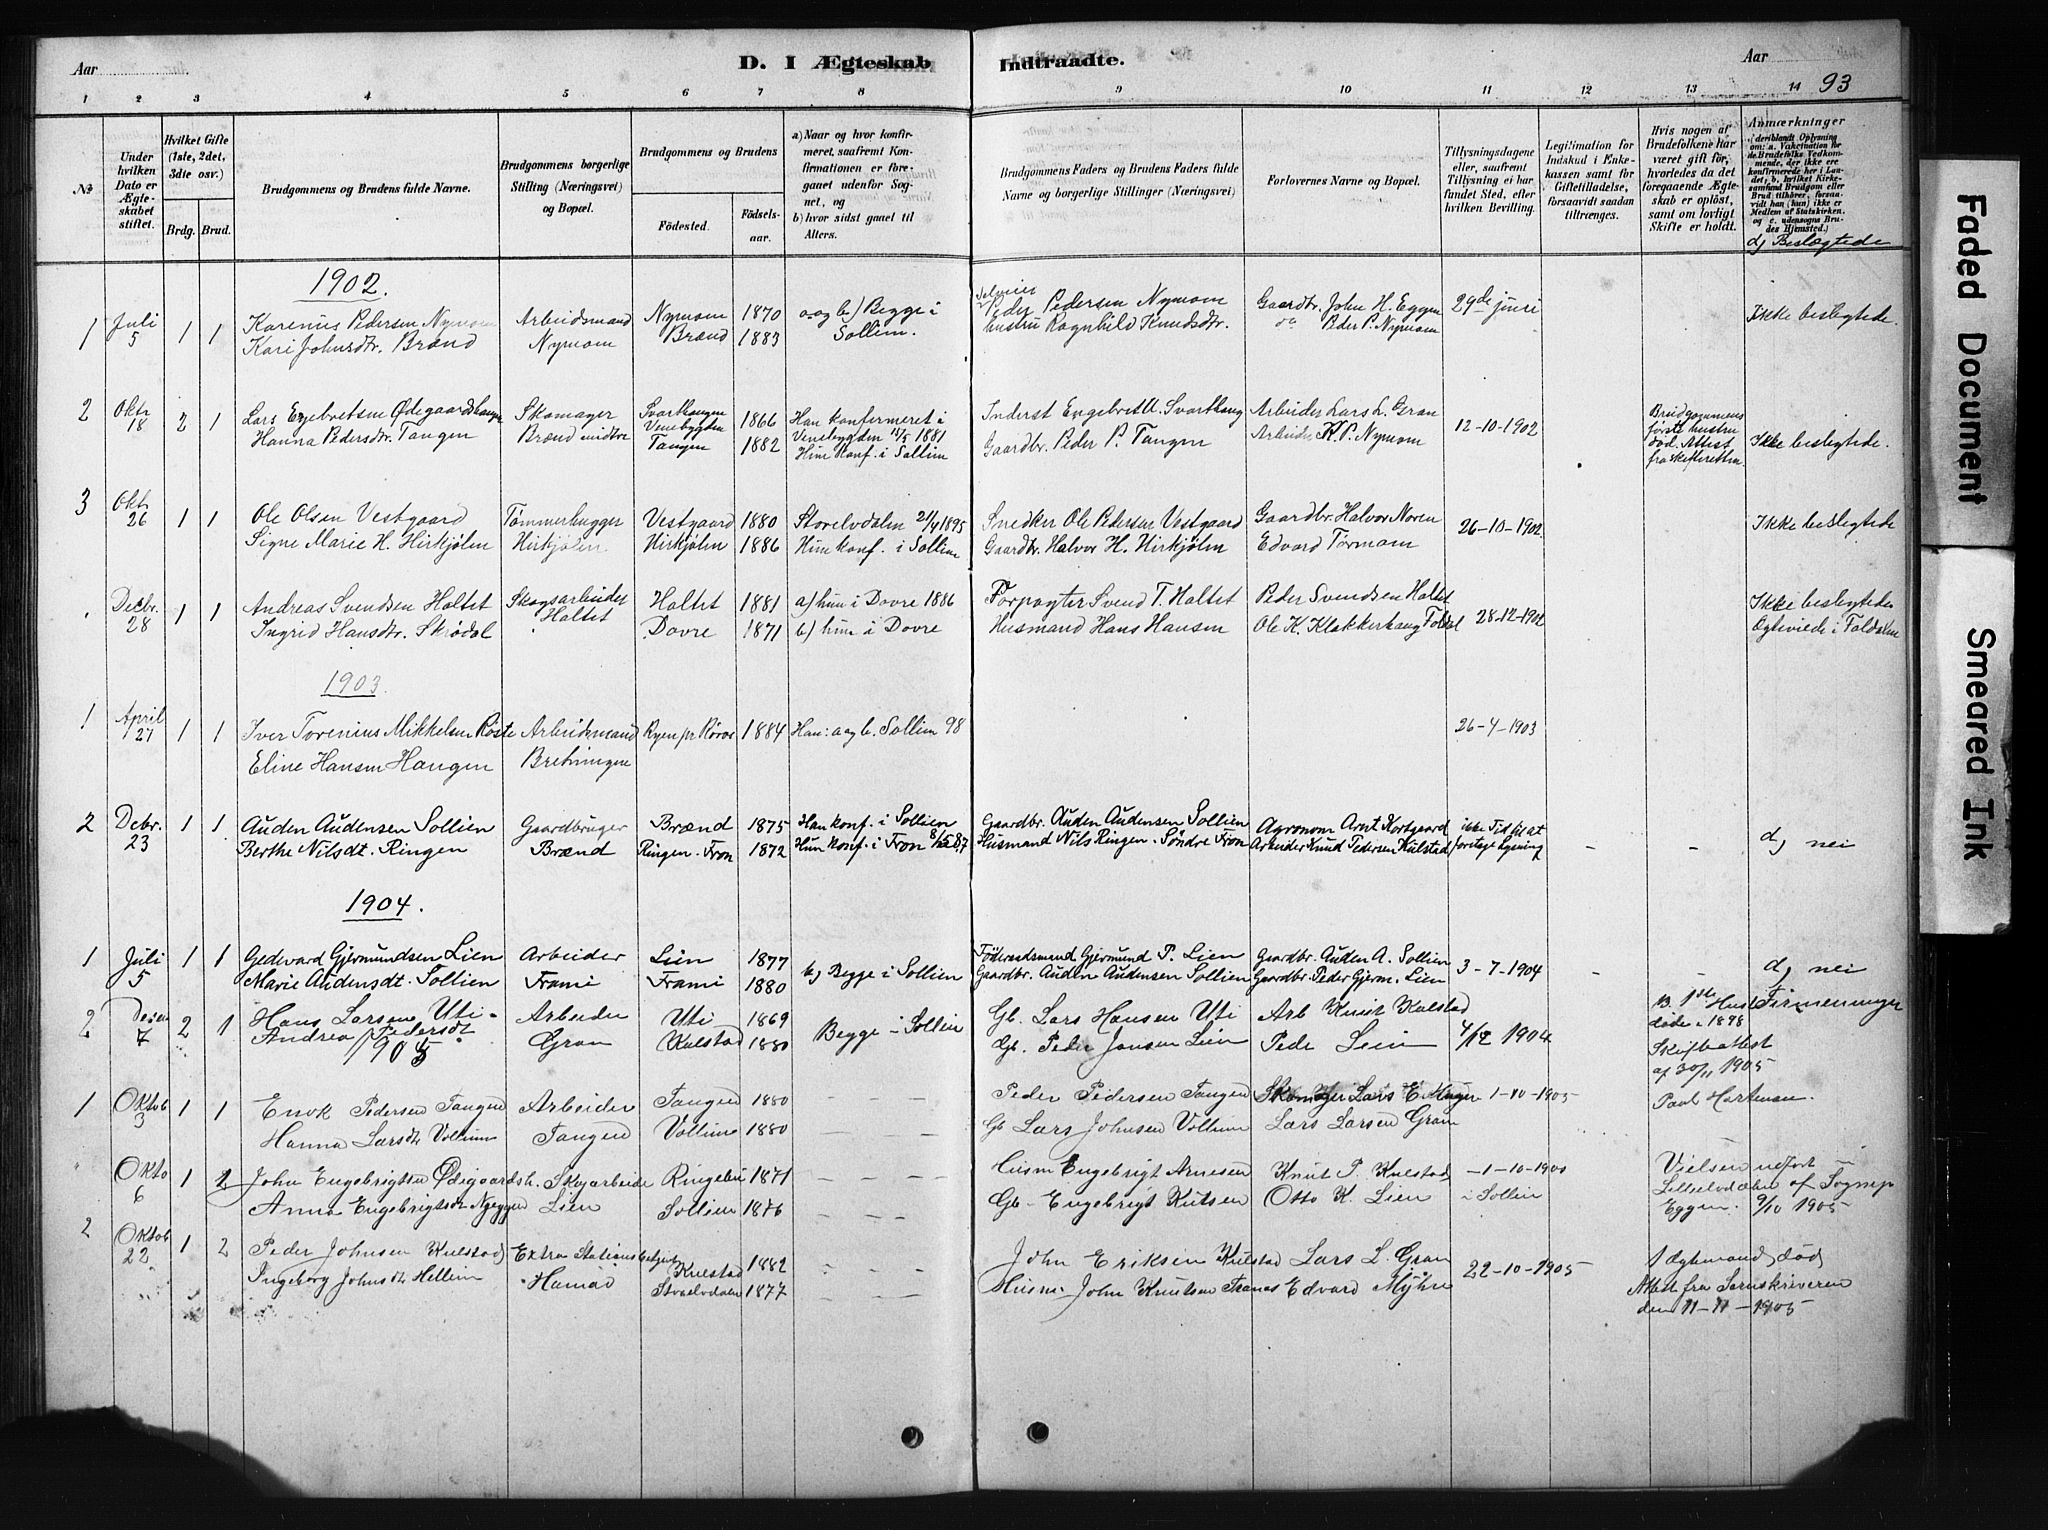 Aar
D. I Ægteskab
Indtraadte.
Aar
93
1 2 3 4 5 6 7 8 9 10 11 12 13 14
No
Under hvilken Dato er Ægteskabet stiftet.
Hvilket Gifte (1ste, 2det, 3die osv.)
Brdg. Brud.
Brudgommens og Brudens fulde Navne.
Brudgommens borgerlige Stilling (Næringsvei) og Bopæl.
Brudgommens og Brudens
Fødested.
Fødselsaar.
a) Naar og hvor konfirmeret, saafremt Konfirmationen er foregaaet udenfor Sognet, og
b) hvor sidst gaaet til Alters.
Brudgommens Faders og Brudens Faders fulde Navne og borgerlige Stillinger (Næringsvei)
Forlovernes Navne og Bopæl.
Tillysningsdagene eller, saafremt Tillysning ei har fundet Sted, efter hvilken Bevilling.
Legitimation for Indskud i Enkekassen samt for Giftetilladelse, forsaavidt saadan tiltrænges.
Hvis nogen af Brudefolkene har været gift før, hvorledes da det foregaaende Ægteskab er opløst, samt om lovligt Skifte er holdt.
Anmærkninger
d) Beslægtede
1902.
1 Juli 5 1 1 Karenius Pedersen Nymoen Arbeidsmand Nymoen 1870 a og b) Begge i Peder Pedersen Nymoen Gaardbr. John H. Eggen 29de juni Ikke beslegtede.
Kari Johnsdtr. Brænd Nymoen Brænd 1883 Sollien. hustru Ragnhild Knudsdtr. do Peder P. Nymoen
2 Oktr 18 2 1 Lars Engebretsen Ødegaardshaugen Skomager Svarthaugen Venebygden 1866 Han konfermeret i Inderst Engebret A. Svarthaug Arbeider Lars L. Gran 12-10-1902 Brudgommens Ikke beslegtede.
Hanna Pedersdtr. Tangen Brænd nedtre Tangen 1882 Venebygden 1881 Gaardbr. Peder P. Tangen Arbeider K. P. Nymoen første hustru
Hun Konf. i Sollien død. Attest
fra skifteretten
3 Oktr 26 1 1 Ole Olsen Vestgaard Tømmerhugger Vestgaard 1880 Storelvdalen 21/4 1895 Snedker Ole Pedersen Vestgaard Gaardbr. Halvor Noren 26-10-1902 Ikke beslegtede
Signe Marie H. Hirkjølen Hirkjølen Hirkjølen 1886 Hun konf. i Sollien Gaardbr. Halvor H. Hirkjølen Edvard Tørmoen
Decbr. 28 1 1 Andreas Svendsen Haltet Skogsarbeider Haltet 1881 a) hun i Dovre 1886 Forpagter Svend T. Haltet Peder Svendsen Haltet 28-12-1902 Ikke beslegtede
Ingrid Hansdtr. Skrødal Haltet Dovre 1871 b) hun i Dovre Husmand Hans Hansen Ole K. Klakkerhaug Foldal Egteviede i Foldalen
1903.
1 April 27 1 1 Iver Torenius Mikkelsen Røste Arbeidsmand Ryen pr Røros 1884 Han: a og b. Sollien 98 26-4-1903
Eline Hansen Haugen Bretningen
2 Debr. 23 1 1 Auden Audensen Sollien Gaardbruger Brænd 1875 Han konf. i Sollien Gaardbr. Auden Audensen Sollien Agronom Arnt Kortgaard ikke Tid til at - - d) nei
Berthe Nilsdt. Ringen Brænd Ringen. Fron 1872 Hun konf. i Fron 8/5 87 Husmand Nils Ringen. Søndre Fron Arbeider Knud Pedersen Kulstad foretage lysning
1904.
1 Juli 5 1 1 Gedevard Gjermundsen Lien Arbeider Lien 1877 b) Begge i Sollien Føderaadsmand Gjermund P. Lien Gaardbr. Auden A. Sollien 3-7-1904 - - d) nei
Marie Audensdt. Sollien Frami Frami 1880 Gaardbr. Auden Audensen Sollien Gaardbr. Peder Gjerm. Lien
2 Desem 7 2 1 Hans Larsen Uti Arbeider Uti 1869 Begge i Sollien Gb. Lars Hansen Uti Arb Knut Kulstad 4/12 1904 B. 1ste Hust
Andrea Pedersdt Gran Kulstad 1880 Gb. Peder Jonsen Lien Peder Lien døde i 1898
Skifteattest
af 30/11 1905
1905
1 Oktob 3 1 1 Enok Pedersen Tangen Arbeider Tangen 1880 - - - Peder Pedersen Tangen Skomager Lars E. 1-10-1905 Paul Hartman.
Hanna Larsdt Vollum Tangen Vollum 1880 - - - Gb Lars Johnsen Vollum Lars Larsen Gran
" Okto 6 1 2 John Engebrigtsen Ødegaardsh. Skogarbeide Ringebu 1871 - - - Husm Engebrigt Arnesen Knut P. Kulstad -1-10-1905 Vielsen udført
Anna Engebrigtsdt Nyeggen Lien Sollien 1876 - - - Gb- Engebrigt Knutsen Otto K. Lien i Sollien Lillelvdalen af Sognep
Eggen. 9/10 1905
2 Oktob 22 1 2 Peder Johnsen Kulstad Extra Stationsbetjent Kulstad 1882 - - - John Eriksen Kulstad Lars L. Gran 22-10-1905 1 Egtemand død
Ingeborg Johnsdt Hellem Hamar Storelvdalen 1877 - - - Husm. John Knutsen Edvard Myhre Attest fra Sorenskriveren
den 11-11-1905
Faded Document
Smeared Ink